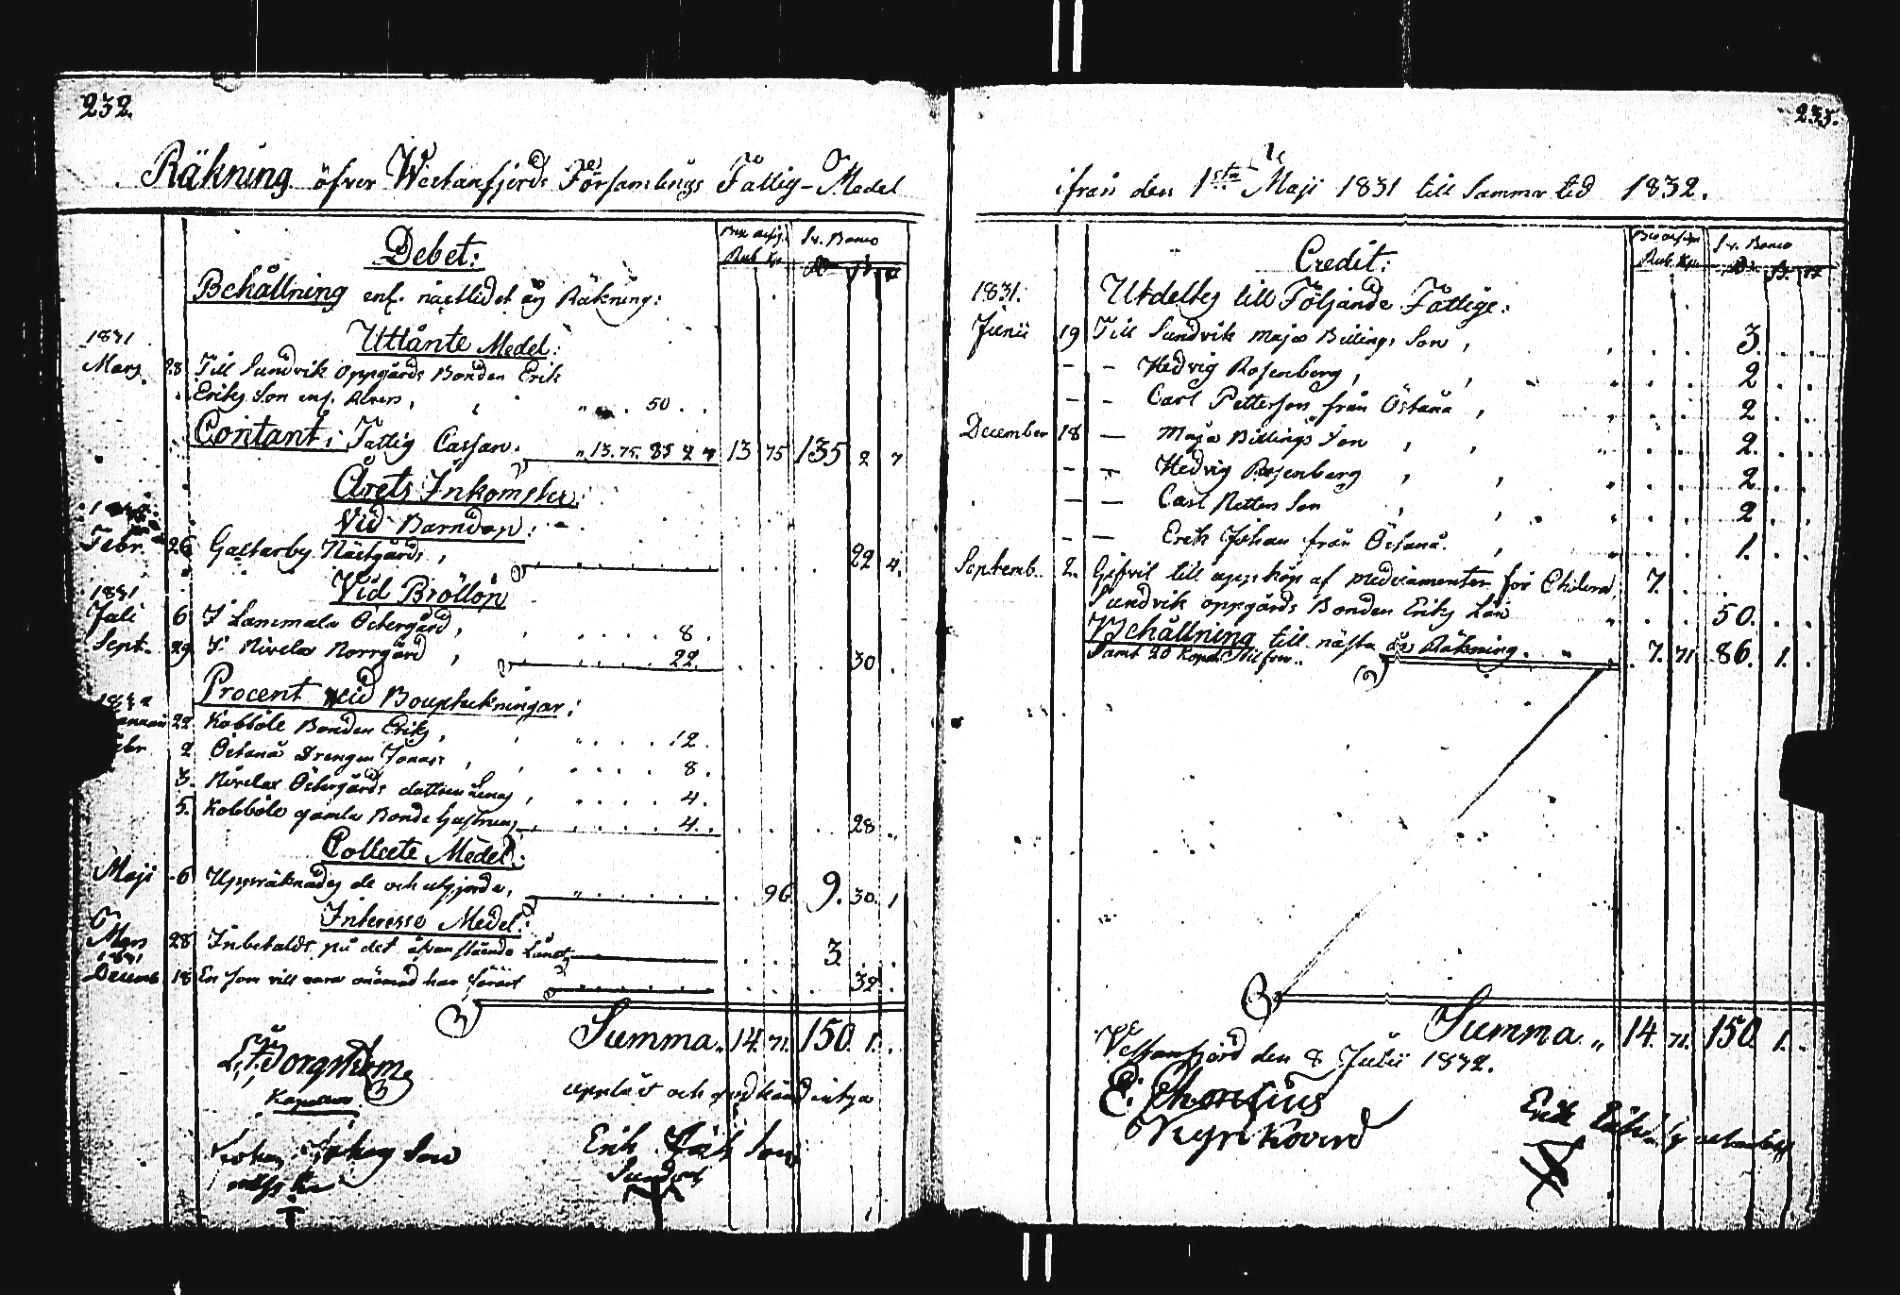 232.
Räkning öfver Westanfjerds Församlings Fattig-Medel
Debet:
Bco assig. Sv. Banco
Rub. Kp. Rd. s. r
Behållning enl. nästlidet års Räkning:
Utlånte Medel:
1831
Mars 28 Till Sundvik Oppgårds Bonden Erik
Eriks Son enl. Revers, 50
Contant i Fattig Cassan. 13. 75. 85 2 7 13 75 135 2 7
Årets Inkomster:
Vid Barndop:
Febr. 26 Galtarby Nästgårds, 22 4.
Vid Bröllop
1831
Juli 6 I Lammala Östergård, 8.
Sept. 29 I Nivelax Norrgård, 22. 30
Procent vid Bouptekningar:
1832
Januari 22. Kobböle Bonden Eriks, 12.
Febr. 2 Östanå Drengen Jonas, 8.
3. Nivelax Östergårds 4.
5. Kobböle gamla Bonde 4. 28
Collecte Medel:
Maji 6 Uppräknades de och utgjorde, 96 9. 30. 1
Interesse Medel:
Mars 28 Inbetalds på det ofvan stående Lånet 3
1831
Decemb 18 En som vill vara onämnd har förärt 32
Summa 14. 71. 150. 1.
Kapellan
uppläst och godkänd intyga
Johan Son
Erik Son
Sundvik
233.
ifrån den 1sta Maji 1831 till Samma tid 1832.
Credit:
Bco assign Sv. Banco
Rub. Kp. Rd. s. r
1831. Utdeltes till Följande Fattige:
Junii 19 Till Sundvik Maja Billings Son, 3.
- - Hedvig Rosenberg, 2
- - Carl Petterson från Östanå, 2
December 18 — Maja Billings Son, 2.
- — Hedvig Rosenberg, 2
- — Carl Petters Son, 2
- — Erik Johan från Östanå. 1.
Septemb. 2. Gifvit till uppköp af medicamenter för Cholera, 7.
Sundvik oppgårds Bonden Eriks Lån 50.
Behållning till nästa års Räkning. 7. 71 86. 1.
Samt 20 Kopek Silfver.
Summa 14. 71. 150 1.
Vestanfjerd den 8 Julii 1832.
Kyrkovärd
Erik